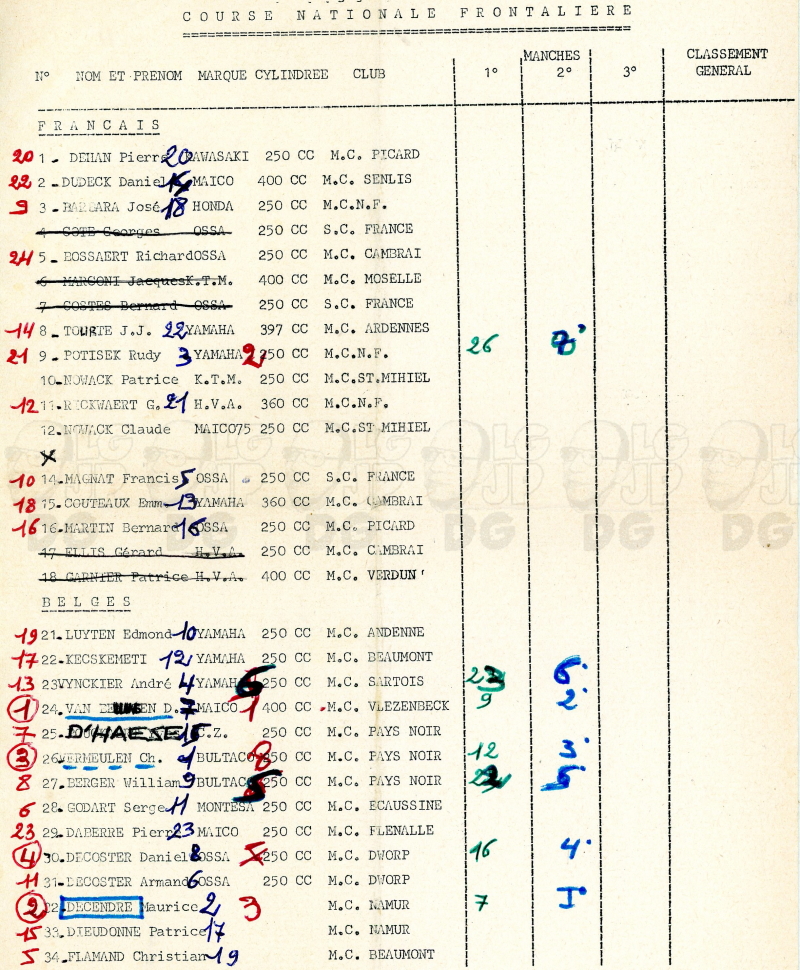 COURSE NATIONALE FRONTALIERE
MANCHES CLASSEMENT
N° NOM ET PRENOM MARQUE CYLINDREE CLUB 1° 2° 3° GENERAL
FRANCAIS
20 1 - DEHAN Pierre 20 KAWASAKI 250 CC M.C. PICARD
22 2 - DUDECK Daniel MAICO 400 CC M.C. SENLIS
9 3 - BARBARA José 18 HONDA 250 CC M.C.N.F.
4 - COTE Georges OSSA 250 CC S.C. FRANCE
24 5 - BOSSAERT Richard OSSA 250 CC M.C. CAMBRAI
6 - MARCONI Jacques K.T.M. 400 CC M.C. MOSELLE
7 - COSTES Bernard OSSA 250 CC S.C. FRANCE
14 8 - TOURTE J.J. 22 YAMAHA 397 CC M.C. ARDENNES
21 9 - POTISEK Rudy 3 YAMAHA 2 250 CC M.C.N.F. 26
10-NOWACK Patrice K.T.M. 250 CC M.C.ST.MIHIEL
12 11-RYCKWAERT G. 21 H.V.A. 360 CC M.C.N.F.
12-NOWACK Claude MAICO75 250 CC M.C.ST MIHIEL
X
10 14-MAGNAT Francis 5 OSSA 250 CC S.C. FRANCE
18 15-COUTEAUX Emm 13 YAMAHA 360 CC M.C. CAMBRAI
16 16-MARTIN Bernard OSSA 250 CC M.C. PICARD
17-ELLIS Gérard H.V.A. 250 CC M.C. CAMBRAI
18 GARNIER Patrice H.V.A. 400 CC M.C. VERDUN
LGJP DG
BELGES
19 21-LUYTEN Edmond 10 YAMAHA 250 CC M.C. ANDENNE
17 22-KECSKEMETI 12 YAMAHA 250 CC M.C. BEAUMONT
13 23 VYNCKIER André 4 YAMAHA 6 250 CC M.C. SARTOIS 6
1 24-VAN D. 7 MAICO 1 400 CC M.C. VLEZENBECK 9 2
7 25- D'HAESE C.Z. 250 CC M.C. PAYS NOIR
3 26 VERMEULEN Ch. 1 BULTACO 8 250 CC M.C. PAYS NOIR 12 3
8 27-BERGER William 9 BULTACO 5 250 CC M.C. PAYS NOIR 5
6 28-GODART Serge 11 MONTESA 250 CC M.C. ECAUSSINE
23 29-DABERRE Pierre 23 MAICO 250 CC M.C. FLENALLE
4 30-DECOSTER Daniel 8 OSSA 250 CC M.C. DWORP 16 4
11 31-DECOSTER Armand 6 OSSA 250 CC M.C. DWORP
2 32 DECENDRE Maurice 2 3 M.C. NAMUR 7 I
15 33-DIEUDONNE Patrice 17 M.C. NAMUR
5 34-FLAMAND Christian 19 M.C. BEAUMONT